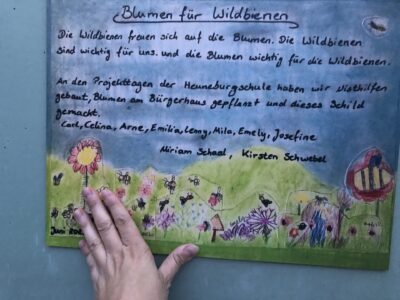 Blumen für Wildbienen
Die Wildbienen freuen sich auf die Blumen. Die Wildbienen
sind wichtig für uns. und die Blumen wichtig für die Wildbienen.
An den Projekttagen der Henneburgschule haben wir Nisthilfen
gebaut, Blumen am Bürgerhaus gepflanzt und dieses Schild
gemacht.
Carl, Celina, Arne, Emilia, Lenny, Mila, Emely, Josefine
Miriam Schaal, Kirsten Schwebel
Juni